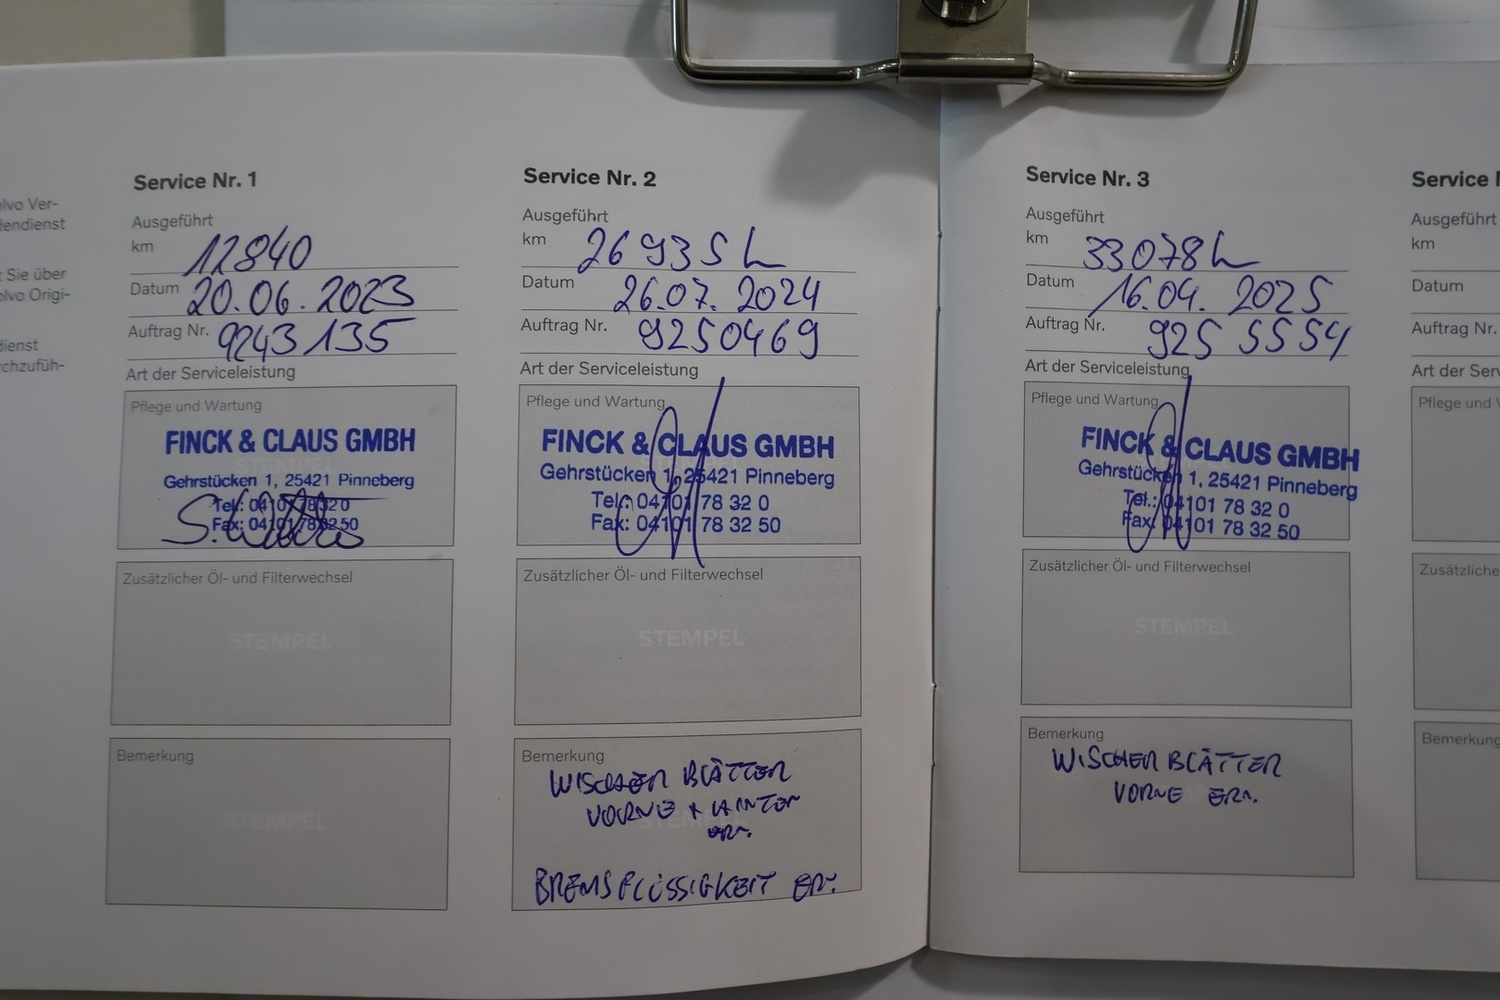 olvo Ver-
dendienst
t Sie über
olvo Origi-
dienst
rchzufüh-
Service Nr. 1
Ausgeführt
km 12840
Datum 20.06.2023
Auftrag Nr. 9243135
Art der Serviceleistung
Pflege und Wartung
FINCK & CLAUS GMBH
Gehrstücken 1, 25421 Pinneberg
Tel.: 04101 78 32 0
Fax: 04101 78 32 50
Zusätzlicher Öl- und Filterwechsel
STEMPEL
Bemerkung
STEMPEL
Service Nr. 2
Ausgeführt
km 26935
Datum 26.07.2024
Auftrag Nr. 9250469
Art der Serviceleistung
Pflege und Wartung
FINCK & CLAUS GMBH
Gehrstücken 1, 25421 Pinneberg
Tel.: 04101 78 32 0
Fax: 04101 78 32 50
Zusätzlicher Öl- und Filterwechsel
STEMPEL
Bemerkung
WISCHER BLÄTTER
VORNE + HINTER
ern.
BREMSFLÜSSIGKEIT ern.
Service Nr. 3
Ausgeführt
km 33078
Datum 16.04.2025
Auftrag Nr. 9255554
Art der Serviceleistung
Pflege und Wartung
FINCK & CLAUS GMBH
Gehrstücken 1, 25421 Pinneberg
Tel.: 04101 78 32 0
Fax: 04101 78 32 50
Zusätzlicher Öl- und Filterwechsel
STEMPEL
Bemerkung
WISCHER BLÄTTER
VORNE ERN.
Service N
Ausgeführt
km
Datum
Auftrag Nr.
Art der Serv
Pflege und W
Zusätzliche
Bemerkung